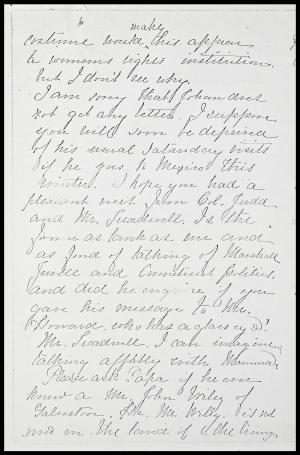 6
make
costume would this appear
be woman's rights institutions.
but I don't see why.
I am sorry that does
not get any better. I suppose
you will soon be deprived
of his usual Saturday visits
if he goes to Mexico this
winter. I hope you had a
pleasant visit from Col. Judd
and Mr. Is the
former as lank as ever and
as fond of talking of Marshall
and Connecticut Politics.
and did he enquire if you
gave his message to Mr.
Howard. who has a glass eye?
Mr. I can imagine
talking affably with
Please ask Papa if he ever
knew a Mr. John Wiley of
Galveston. Mr. Wiley is not
now in the land of the living.